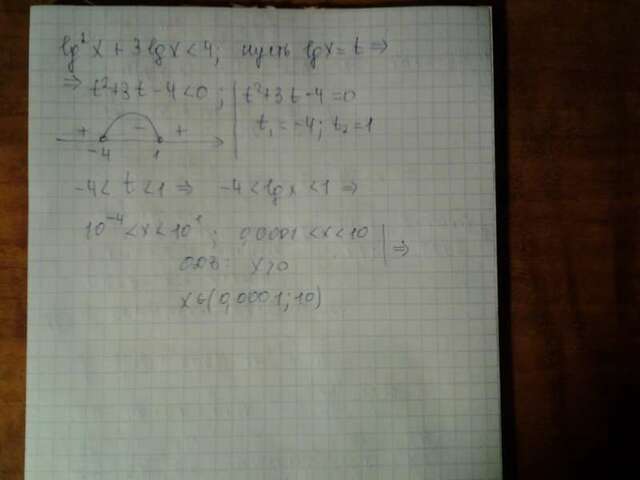 lg²x + 3lgx < 4; пусть lgx = t ⇒
⇒ t²+3t-4<0; | t²+3t-4=0
t₁ = -4; t₂ = 1
+ - +
-4 1
-4 < t < 1 ⇒ -4 < lgx < 1 ⇒
10⁻⁴ < x < 10¹; 0,0001 < x < 10 | ⇒
ОДЗ: x>0
x∈(0,0001; 10)